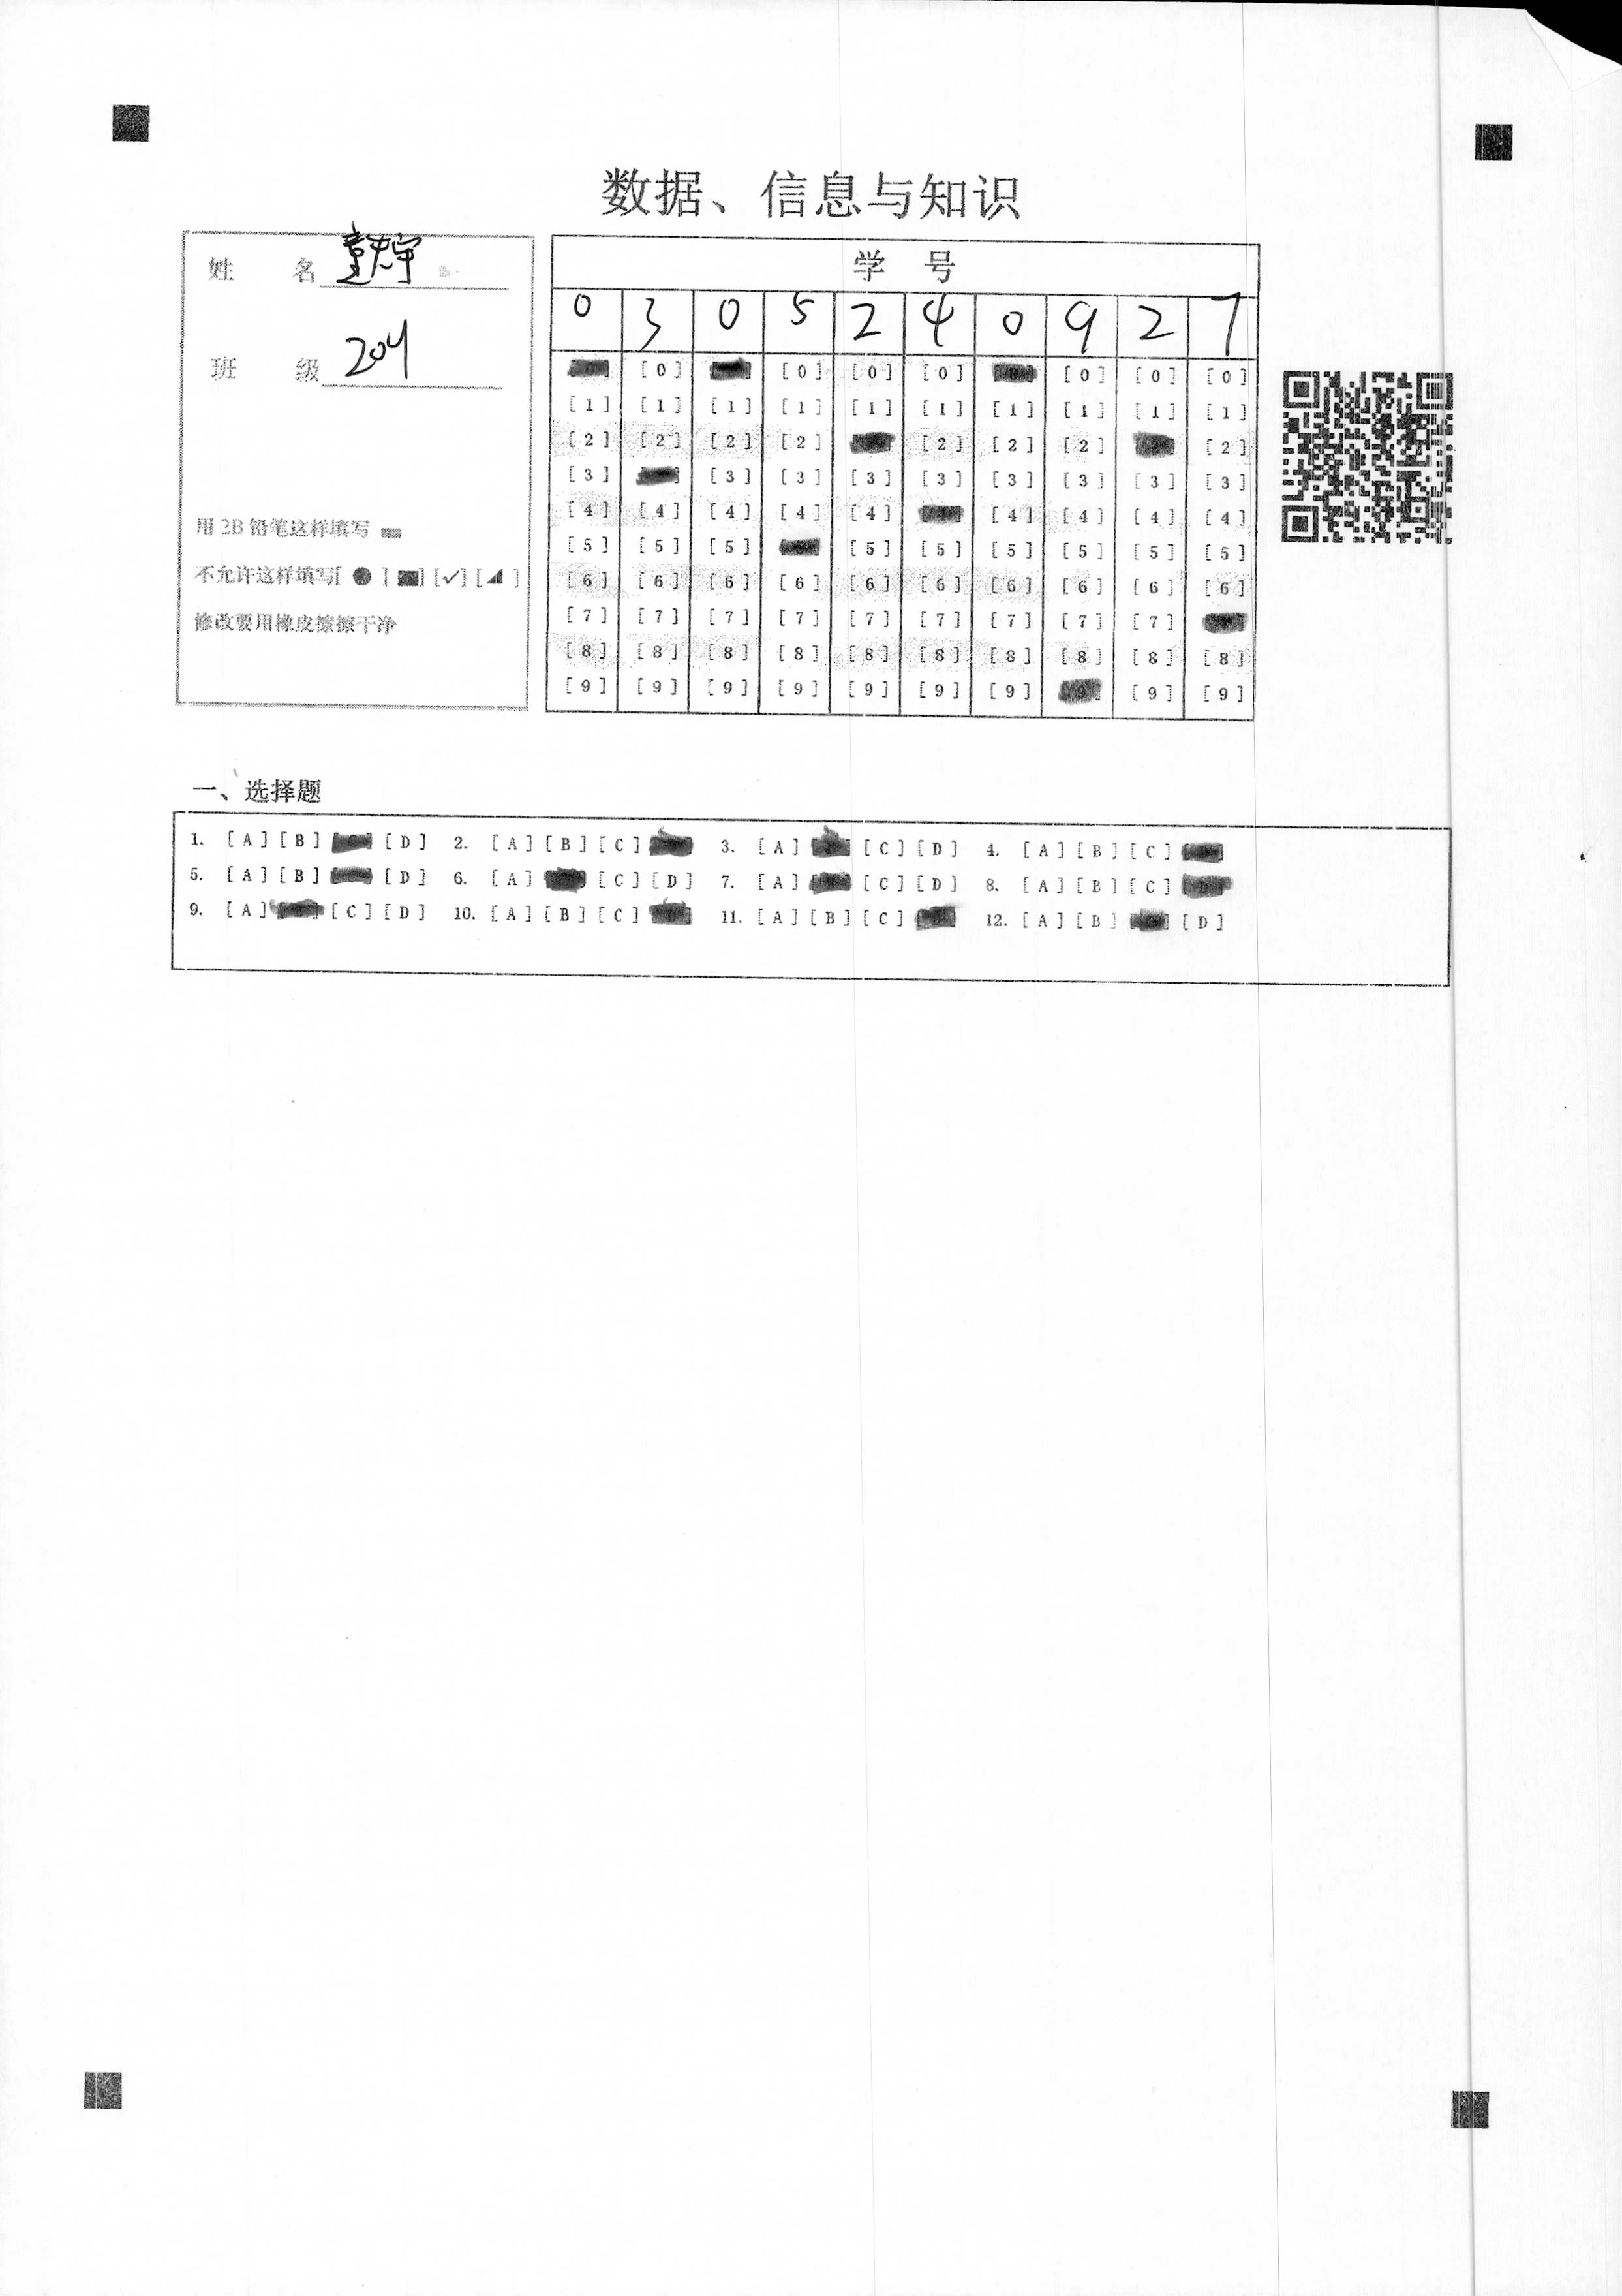 数据、信息与知识
姓 名 童志宇
班 级 204
用 2B 铅笔这样填写
不允许这样填写[ ● ] [■] [✓] [◢ ]
修改要用橡皮擦擦干净
学 号
0 3 0 5 2 4 0 9 2 7
[0] [0] [0] [0] [0] [0] [0]
[1] [1] [1] [1] [1] [1] [1] [1] [1] [1]
[2] [2] [2] [2] [2] [2] [2] [2]
[3] [3] [3] [3] [3] [3] [3] [3] [3]
[4] [4] [4] [4] [4] [4] [4] [4] [4]
[5] [5] [5] [5] [5] [5] [5] [5] [5]
[6] [6] [6] [6] [6] [6] [6] [6] [6] [6]
[7] [7] [7] [7] [7] [7] [7] [7] [7]
[8] [8] [8] [8] [8] [8] [8] [8] [8] [8]
[9] [9] [9] [9] [9] [9] [9] [9] [9] [9]
一、选择题
1. [A] [B] [D] 2. [A] [B] [C] 3. [A] [C] [D] 4. [A] [B] [C]
5. [A] [B] [D] 6. [A] [C] [D] 7. [A] [C] [D] 8. [A] [B] [C] [D]
9. [A] [C] [D] 10. [A] [B] [C] 11. [A] [B] [C] 12. [A] [B] [D]